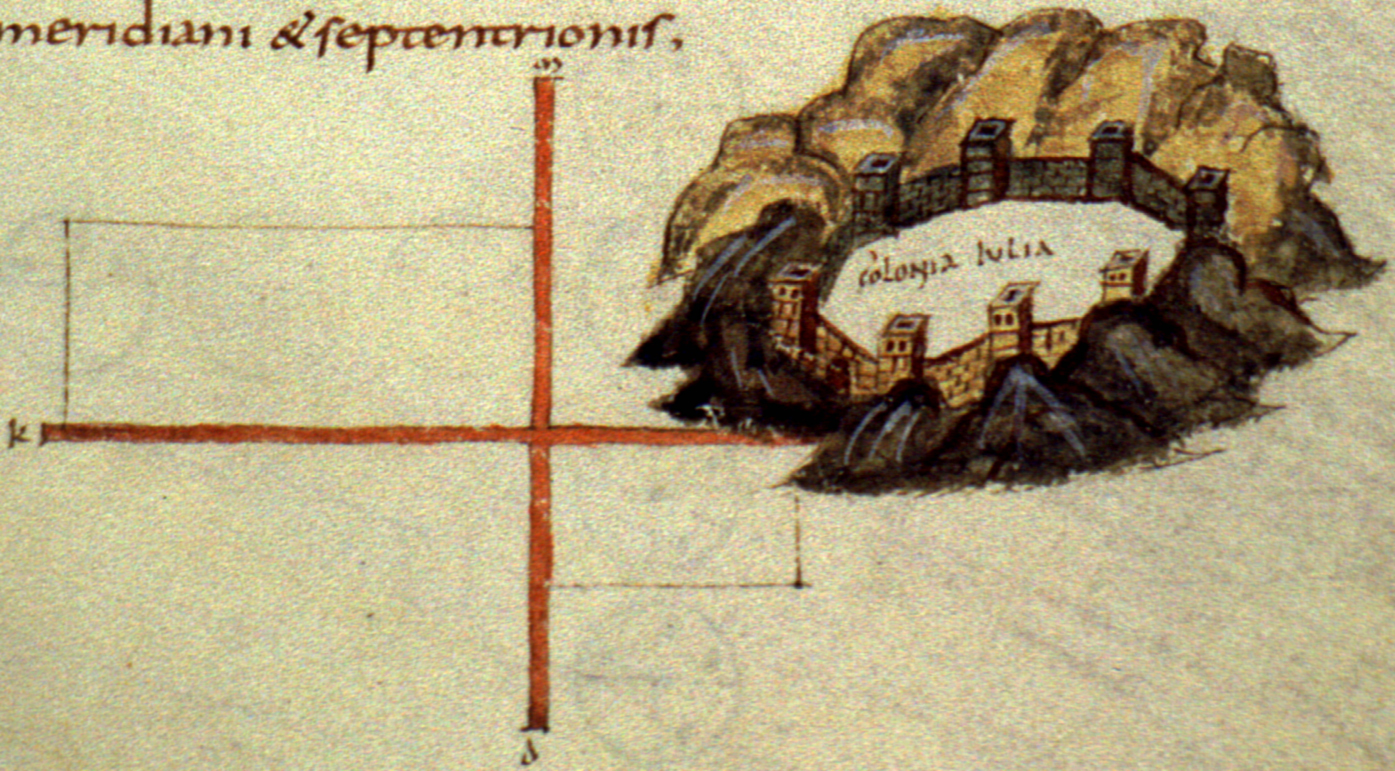 meridiani & septentrionis,
m
colonia Iulia
k
d